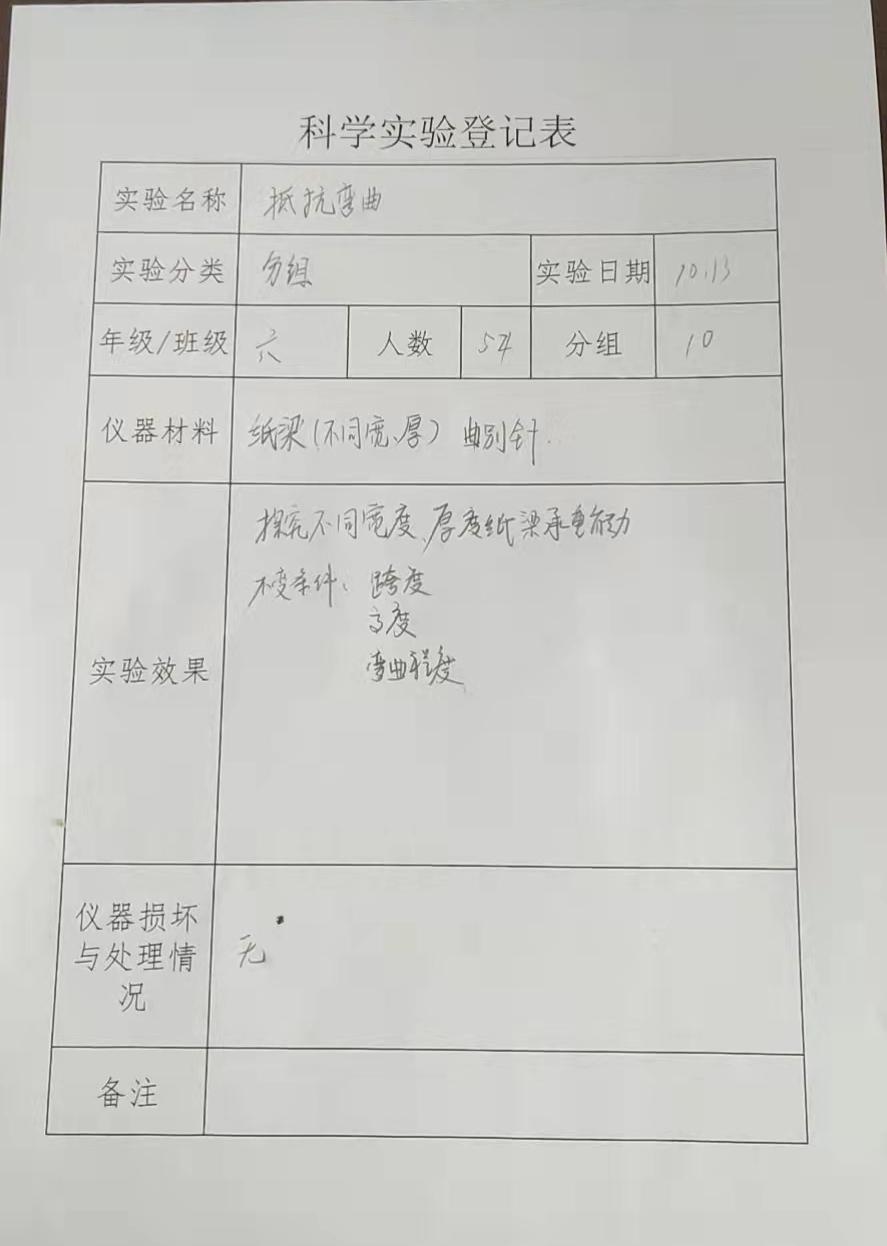 科学实验登记表
实验名称 抵抗弯曲
实验分类 分组 实验日期 10.13
年级/班级 六 人数 54 分组 10
仪器材料 纸梁(不同宽、厚) 曲别针.
实验效果
探究不同宽度、厚度纸梁承重能力
不变条件: 跨度
高度
弯曲程度
仪器损坏
与处理情
况
无
备注